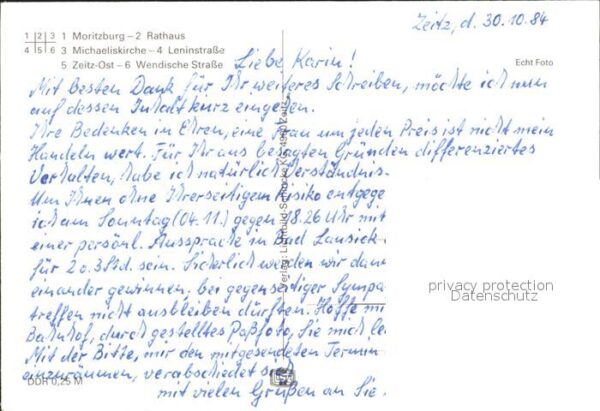 Zeitz, d. 30.10.84
1 2 3 1 Moritzburg – 2 Rathaus
4 5 6 3 Michaeliskirche – 4 Leninstraße
5 Zeitz-Ost – 6 Wendische Straße
Echt Foto
Liebe Karin!
Mit besten Dank für Ihr weiteres Schreiben, möchte ich nun
auf dessen Inhalt kurz eingehen.
Ihre Bedenken in Ehren, eine Frau um jeden Preis ist nicht mein
Handeln wert. Für Ihr aus besagten Gründen differenziertes
Verhalten, habe ich natürlich Verständnis.
Um Ihnen ohne Ihrerseitigem Risiko entgege
ich am Sonntag (04.11.) gegen 18.26 Uhr mit
einer persönl. Aussprache in Bad Lausick
für 2 o. 3 Std. sein. Sicherlich werden wir dann
einander gewinnen. bei gegenseitiger Sympa
treffen nicht ausbleiben dürften. Hoffe mi
Bahnhof, durch gestelltes Paßfoto, Sie mich le
Mit der Bitte, mir den mitgesendeten Termin
einzuräumen, verabschiedet si
mit vielen Grüßen an Sie.
DDR 0,25 M
privacy protection
Datenschutz